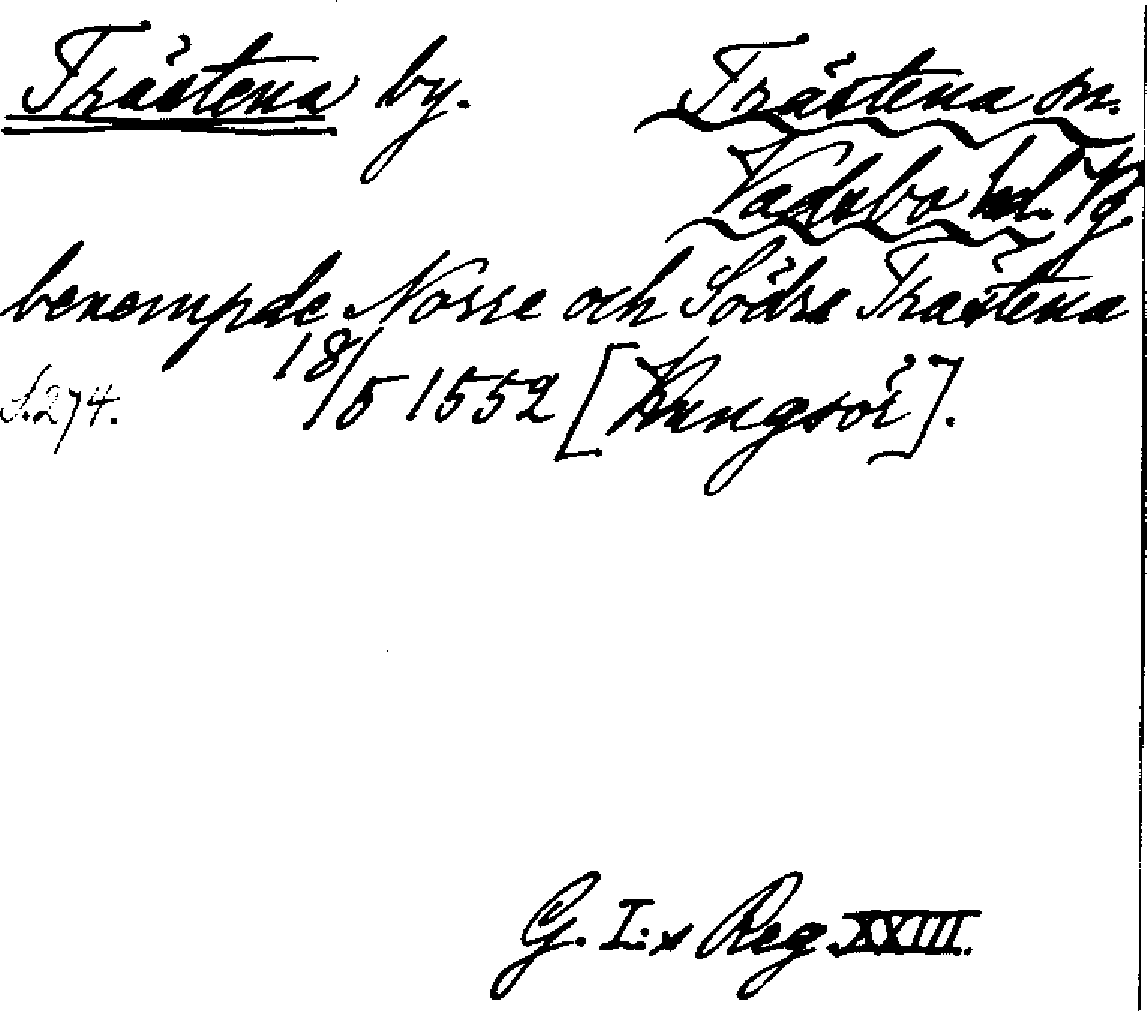 Trästena by.
Trästena sn.
Vadsbo hd. Vg.
benempde Norre och Södre Trästena
S. 274. 18/5 1552 [Kungsör].
G. I:s Reg. XXIII.